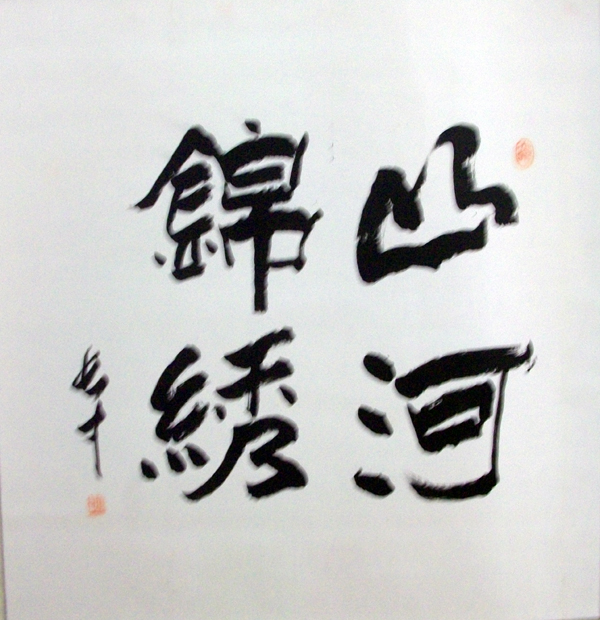 山河
錦綉